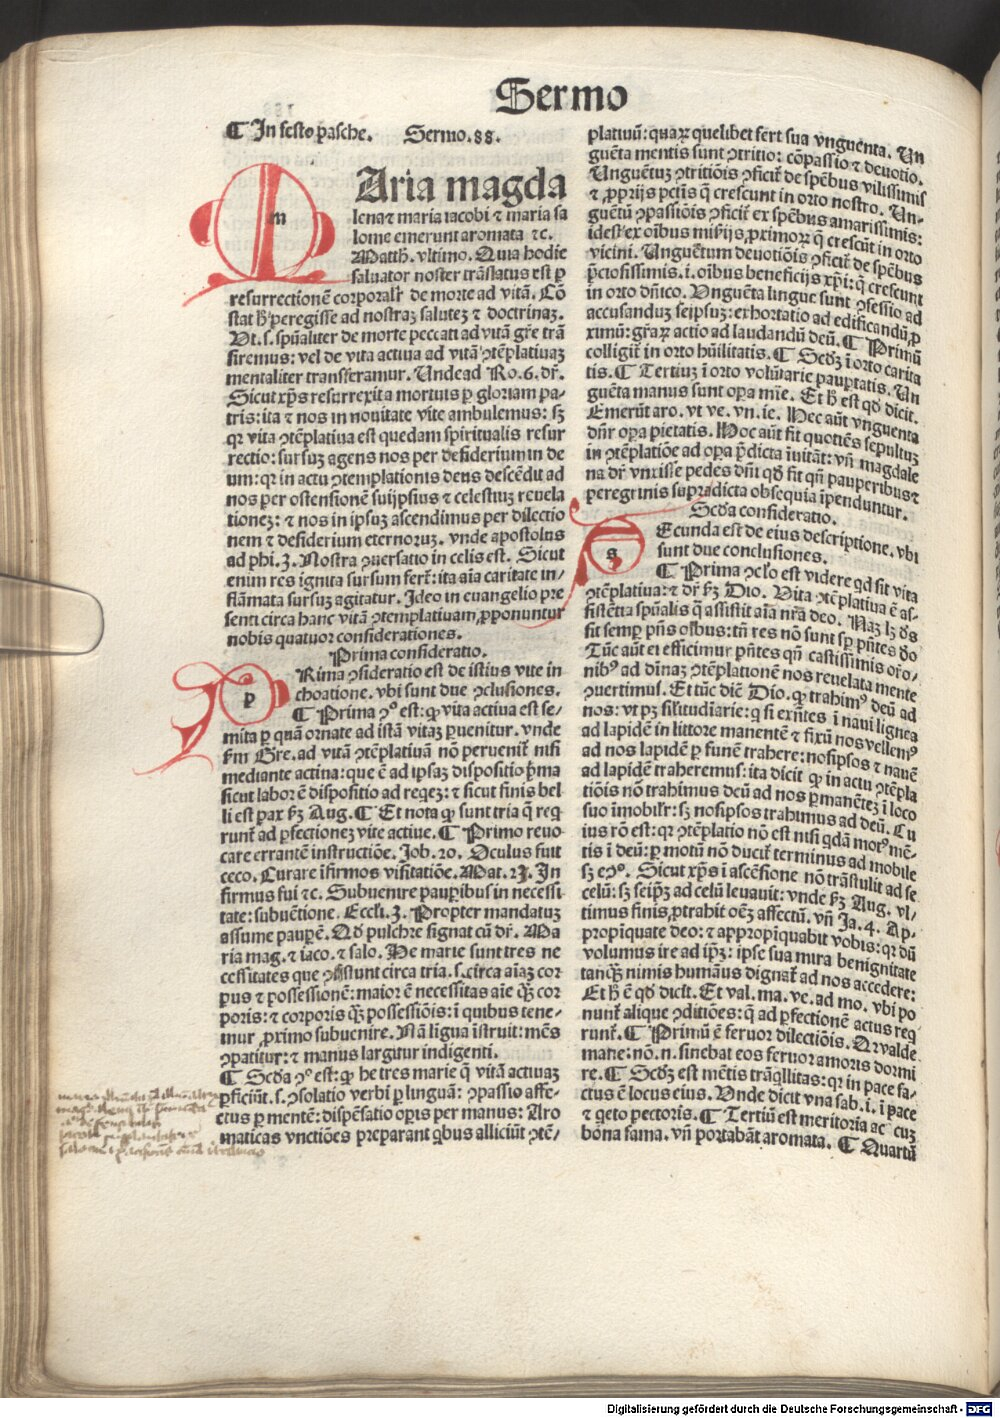 Sermo
¶ In festo pasche. Sermo.88.
MAria magda
lena⁊ maria iacobi ⁊ maria sa
lome emerunt aromata ⁊c.
Matth̄. vltimo. Quia hodie
saluator noster trāslatus est ꝑ
resurrectionē corporalr̄ de morte ad vitā. Cō
stat hͦ peregisse ad nostraꝫ salutēꝫ ⁊ doctrinaꝫ.
Ut.s. spūaliter de morte peccati ad vitā gr̄e trā
siremus: vel de vita actiua ad vitā ꝯtēplatiuaꝫ
mentaliter transferamur. Unde ad Ro.6. dr̄.
Sicut xp̄s resurrexit a mortuis ꝑ gloriam pa-
tris: ita ⁊ nos in nouitate vite ambulemus: sꝫ
qꝛ vita ꝯtēplatiua est quedam spiritualis resur
rectio: sursuꝫ agens nos per desiderium in de
um: qꝛ in actu ꝯtemplationis deus descēdit ad
nos per ostensionē suiipsius ⁊ celestiuꝫ reuela
tioneꝫ: ⁊ nos in ipsuꝫ ascendimus per dilectio
nem ⁊ desiderium eternoruꝫ. vnde apostolus
ad phi.3. Nostra ꝯuersatio in celis est. Sicut
enim res ignita sursum fert̄: ita aīa caritate in-
flāmata sursuꝫ agitatur. Ideo in euangelio pre
senti circa hanc vitā ꝯtemplatiuam, ꝓponuntur
nobis quatuor considerationes.
Prima consideratio.
PRima ꝯsideratio est de istius vite in
choatione. vbi sunt due ꝯclusiones.
¶ Prima ꝯͦ est: ꝙ vita actiua est se-
mita ꝑ quā ornate ad istā vitaꝫ ꝑuenitur. vnde
ẜm Gre. ad vitā ꝯtēplatiuā nō peruenit̄ nisi
mediante actiua: que ē ad ipsaꝫ dispositio p̄ma
sicut labor ē dispositio ad reqeꝫ: ⁊ sicut finis bel
li est pax ẜꝫ Aug. ¶ Et nota ꝙ sunt tria q̄ req
runt̄ ad ꝑfectioneꝫ vite actiue. ¶ Primo reuo-
care errantē instructiōe. Job.29. Oculus fuit
ceco. Curare īfirmos visitatiōe. Mat.25. In
firmus fui ⁊c. Subuenire pauꝑibus in necessi
tate: subuētione. Eccli.3. Propter mandatuꝫ
assume pauꝑē. Qd pulchre signat cū dr̄. Ma
ria mag. ⁊ iaco. ⁊ salo. He marie sunt tres ne
cessitates que ꝯsistunt circa tria.s. circa aīaꝫ cor
pus ⁊ possessionē: maior ē necessitas aīe qꝫ cor
poris: ⁊ corporis qꝫ possessiōis: ī quibus tene-
mur, proximo subuenire. Nā ligua īstruit: mēs
ꝯpatitur: ⁊ manus largitur indigenti.
¶ Secda ꝯͦ est: ꝙ he tres marie q̄ vitā actiuaꝫ
ꝑficiūt.s. ꝯsolatio verbi ꝑ linguā: ꝯpassio affe-
ctus ꝑ mentē: dispēsatio oꝑis per manus: Aro
maticas vnctiōes preparant qbus alliciūt ꝯtē-
platiuū: quaꝝ quelibet fert sua vnguenta. Un
guēta mentis sunt ꝯtritio: cōpassio ⁊ deuotio.
Unguētuꝫ ꝯtritiōis ꝯficit̄ de spēbus vilissimis
⁊ ꝓprijs pctīs q̄ crescunt in orto nostro. Un-
guētū ꝯpassiōis ꝯficit̄ ex spēbus amarissimis:
idest ex oībus mīsijs, proximoꝝ q̄ crescūt in orto
vicini. Unguētum deuotiōis ꝯficit̄ de spēbus
p̄ciosissimis.i. oībus beneficijs xp̄i: q̄ crescunt
in orto dn̄ico. Unguēta lingue sunt ꝯfessio ad
accusanduꝫ seipsuꝫ: exhortatio ad edificandū, ꝓ
ximū: gr̄aꝝ actio ad laudandū deū. ¶ Primū
colligit̄ in orto hūilitatis. ¶ Scdꝫ ī orto carita
tis. ¶ Tertiuꝫ ī orto volūtarie pauꝑtatis. Un
guēta manus sunt oꝑa mīe. Et hͦ est qd dicit.
Emerūt aro. vt ve. vn. ie. Nec aūt vnguenta
dn̄r oꝑa pietatis. Hoc aūt fit quotiēs sepultuꝫ
in ꝯtēplatiōe ad oꝑa p̄dicta īuitāt: vn̄ magdale
na dr̄ vnxisse pedes dn̄i qd fit qn̄ pauꝑibus ⁊
peregrinis supradicta obsequia īpenduntur.
Scd̄a consideratio.
SEcunda est de eius descriptione. vbi
sunt due conclusiones.
¶ Prima ꝯclō est videre qd sit vita
ꝯtēplatiua: ⁊ dr̄ ẜꝫ Dio. Vita ꝯtēplatiua ē as-
sistentia spūalis q̄ assistit aīa nr̄a deo. Naꝫ lꝫ ds̄
sit semꝑ pn̄s oībus: tn̄ res nō sunt sꝑ pn̄tes do
Tūc aūt ei efficimur pn̄tes qn̄ castissimis oīo.
nibꝰ ad diuinaꝫ ꝯtēplationē nos reuelata mente
ꝯuertimus. Et tūc diē Dio. ꝙ trahimꝰ deū ad
nos: vt pꝫ silītudīarie: q̄ si exn̄tes ī naui lignea
ad lapidē in littore manentē ⁊ fixū nos vellemꝰ
ad nos lapidē ꝑ funē trahere: nosipsos ⁊ nauē
ad lapidē traheremus: ita dicit ꝙ in actu ꝯtēpla
tiōis nō trahimus deū ad nos ꝑmanētēꝫ ī loco
suo īmobilr̄: sꝫ nosipsos trahimus ad deū. Cu
ius rō est: qꝛ ꝯtēplatio nō est nisi qdā motꝰ mē-
tis ī deū: ꝑ motū nō ducit̄ terminus ad mobile
sꝫ eͦꝯͦ. Sicut xp̄s ī ascēsione nō trāstulit ad se
celū: sꝫ seipꝫ ad celū leuauit: vnde ẜꝫ Aug. vl-
timus finis, ꝓtrahit oēꝫ affectū. vn̄ Ja.4. Ap-
propīquate deo: ⁊ appropīquabit vobis: qꝛ dū
volumus ire ad ip̄ꝫ: ipse sua mira benignitate
tanqꝫ nimis humanus dignat̄ ad nos accedere:
Et hͦ ē qd dicit. Et val. ma. ve. ad mo. vbi po
nunt̄ alique ꝯditiōes: q̄ ad ꝑfectionē actus req
runt̄. ¶ Primū ē feruor dilectiōis. Qꝛ valde
mane: nō.n. sinebat eos feruor amoris dormi
re. ¶ Scdꝫ est mētis trāqllitas: qꝛ in pace fa-
ctus ē locus eius. Unde dicit vna sab.i. ī pace
⁊ qeto pectoris. ¶ Tertiū est meritoria ac cuꝫ
bona fama. vn̄ portabāt aromata. ¶ Quartū
Digitalisierung gefördert durch die Deutsche Forschungsgemeinschaft - DFG